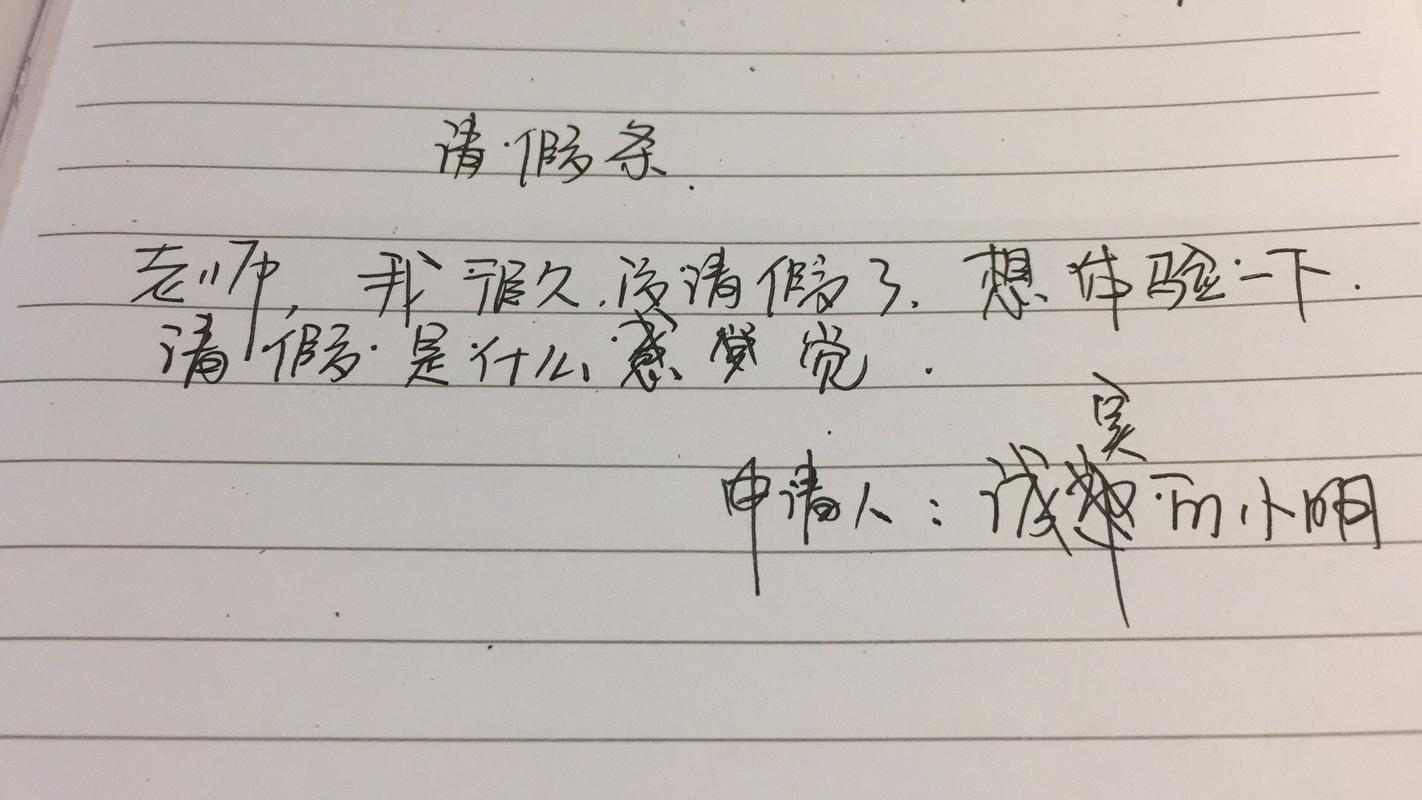 请假条.
老师, 我很久没请假了. 想体验一下.
请假是什么感觉.
申请人: 诚实而小明